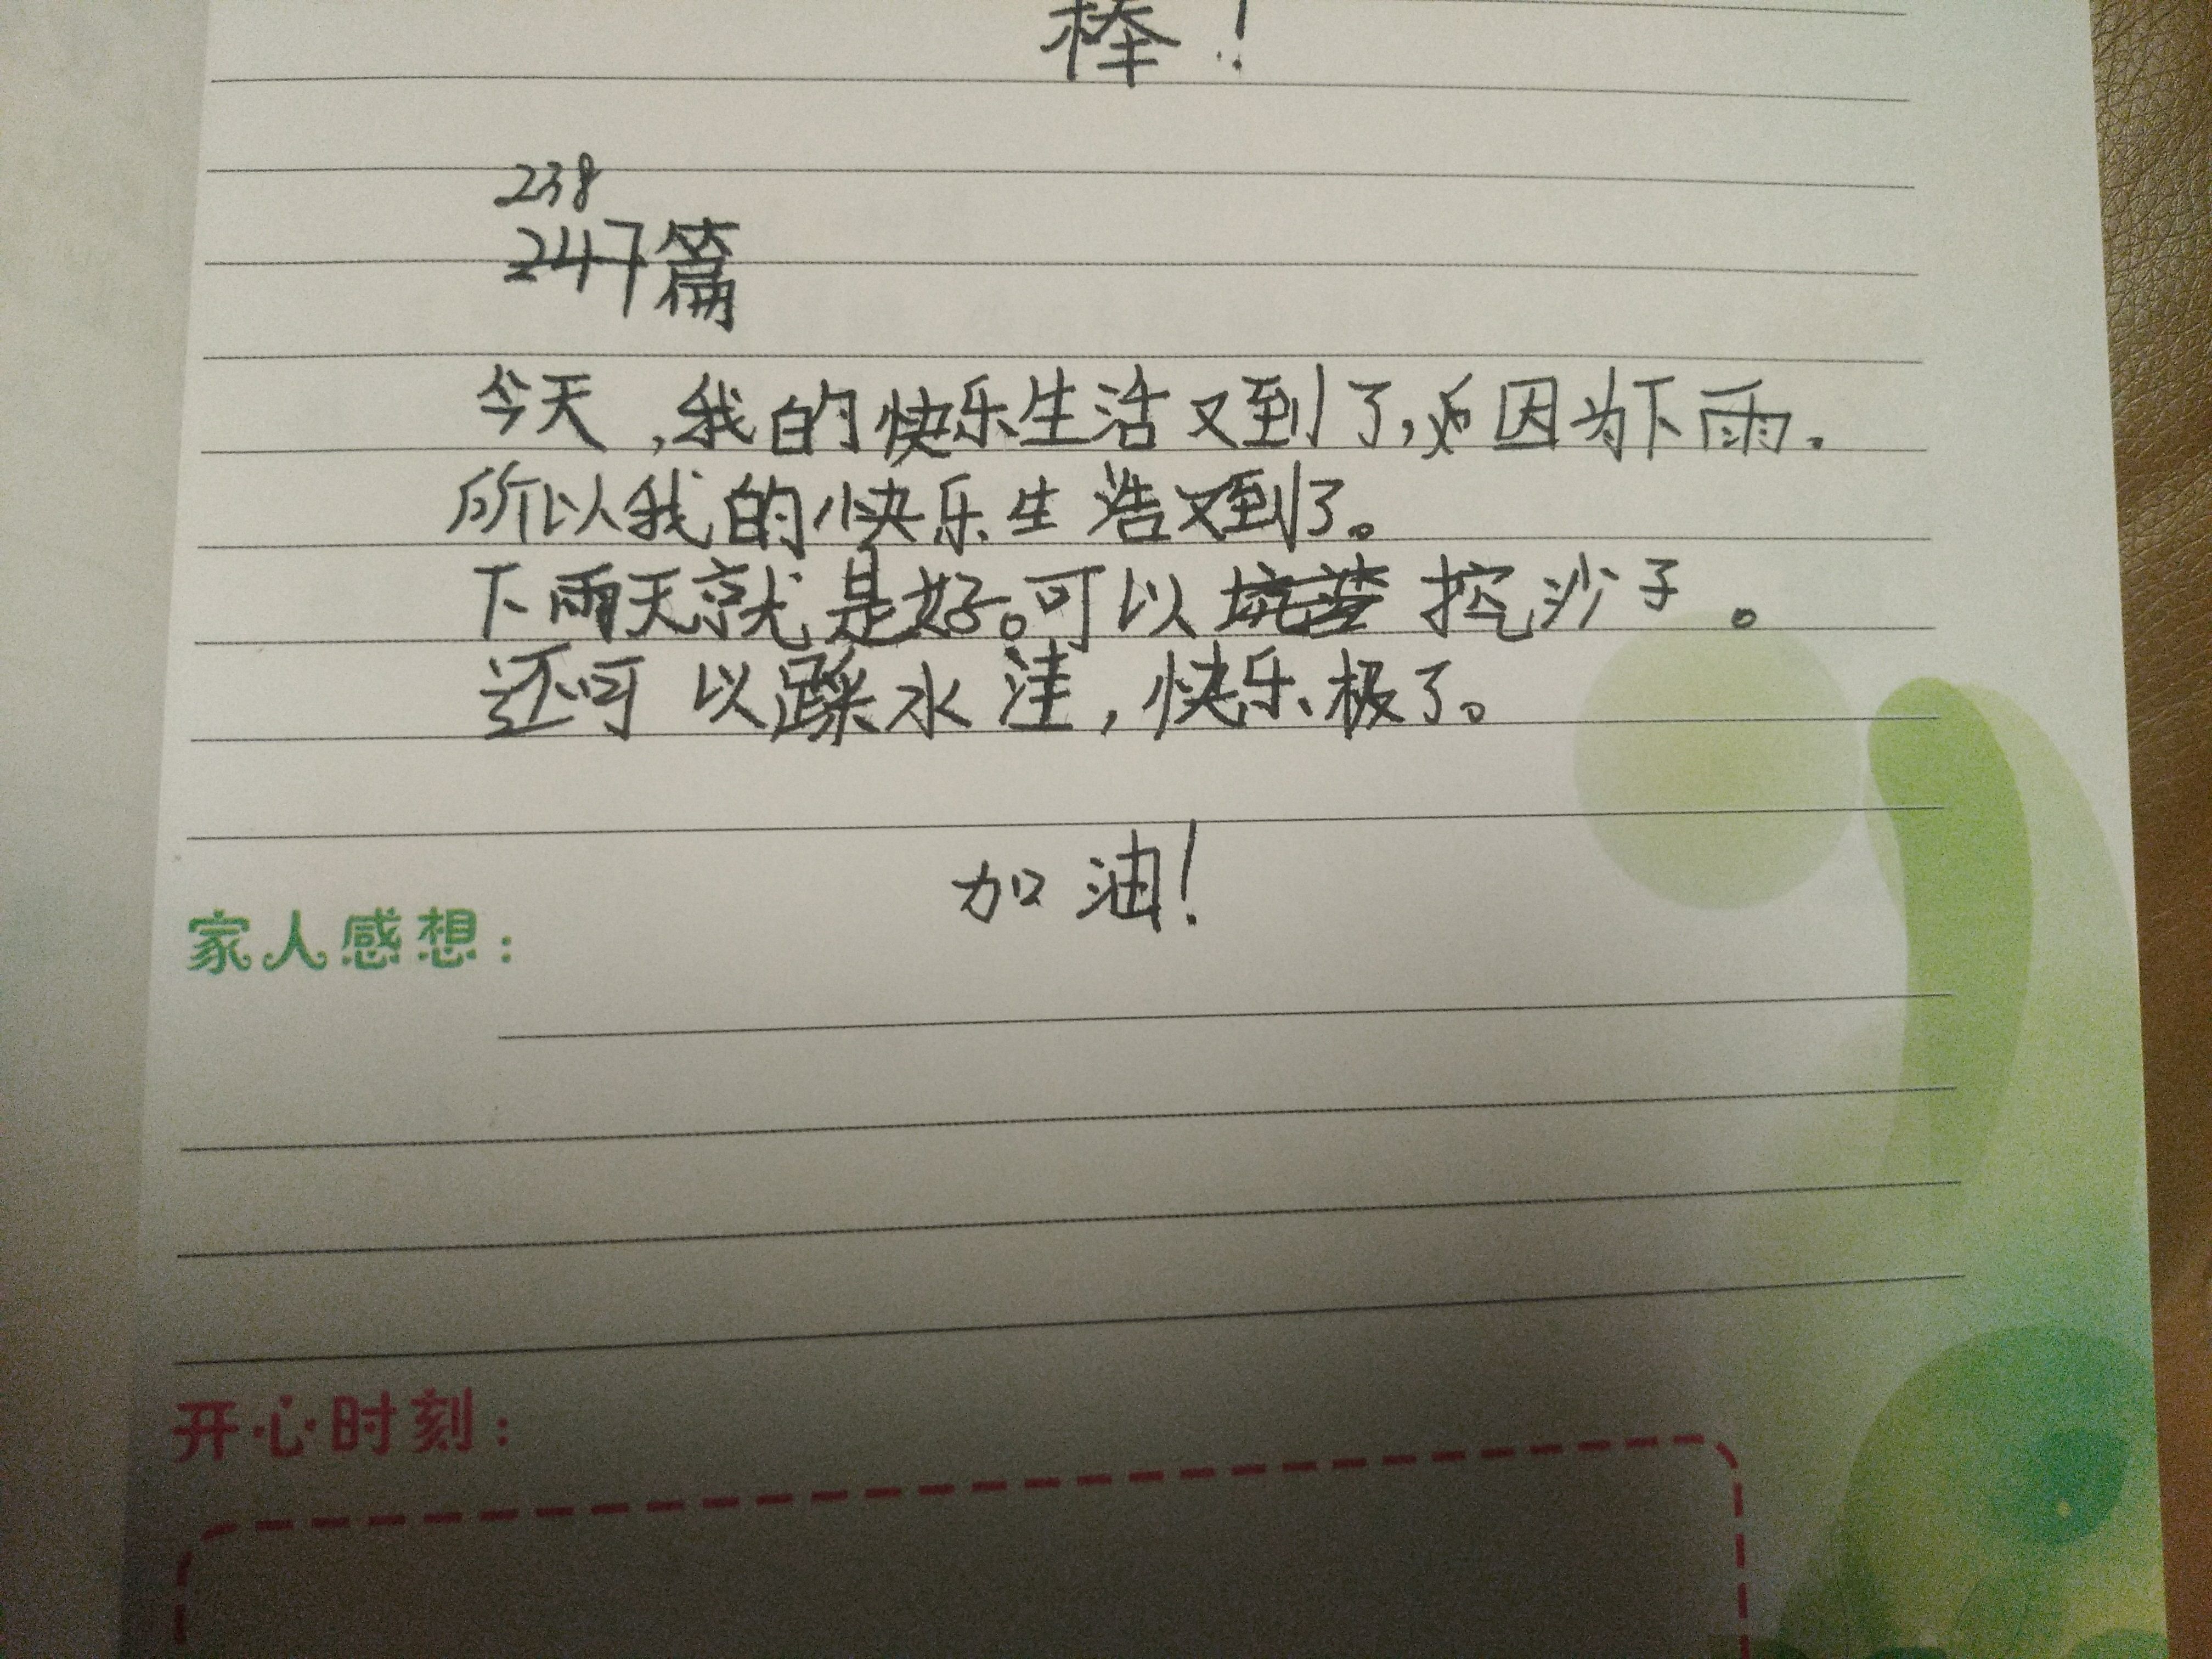 棒！
238
247篇
今天,我的快乐生活又到了,因为下雨.
所以我的快乐生活又到了。
下雨天就是好。可以挖沙子。
还可以踩水洼,快乐极了。
加油!
家人感想:
开心时刻: